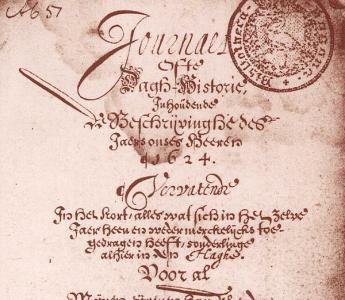 Ab 51
Journael
Ofte
Dagh-Historie,
Inhoudende
de Beschrijvinghe des
Jaers onses Heeren
1624.
Vervatende
In het kort, alles wat sich in het zelve
Jaer heen en weder merckelijcks toe-
gedragen heeft, sonderlinge
alhier in den Haghe.
Voor al